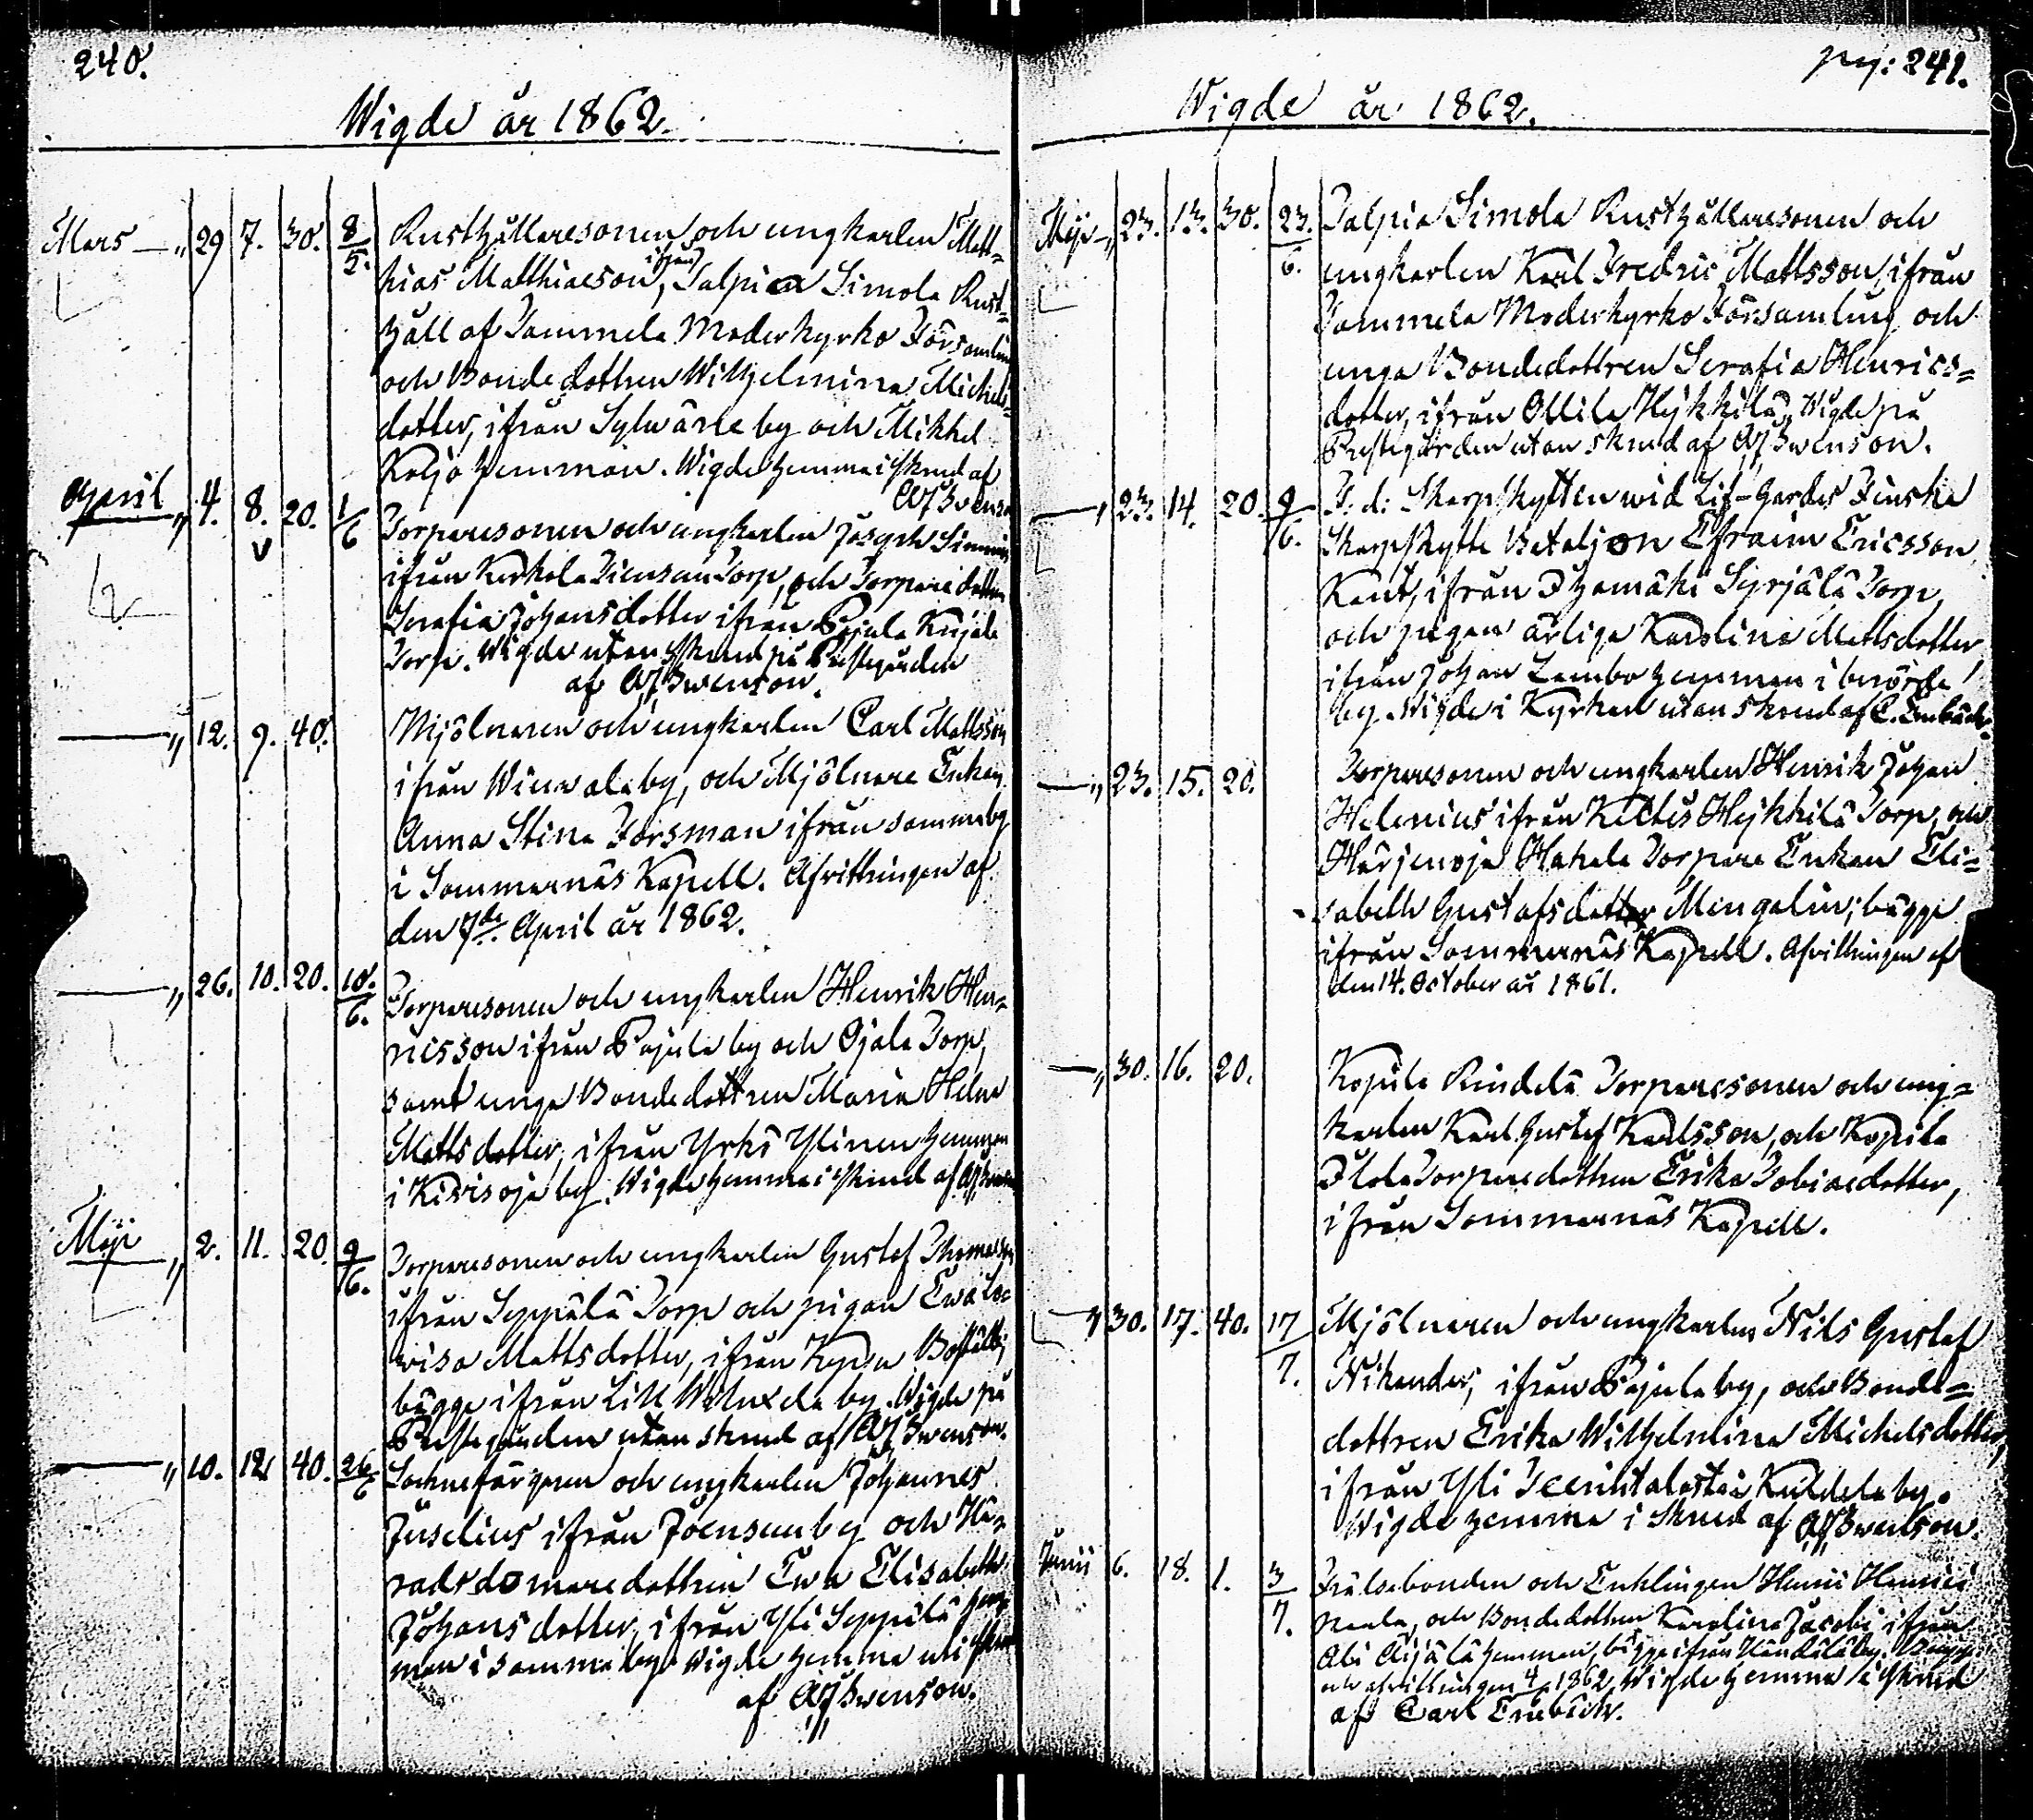 240.
Wigde år 1862.
Mars — „ 29 7. 30. 8/5. Rusthållaresonen och ungkarlen Matt-
hias Matthiasson, ifrån Salpia Simola Rust-
håll af Tammela Moderkyrko Församling
och Bondedottren Wilhelmina Michels-
dotter, ifrån Sylwäne by och Mikkel
Kojo hemman. Wigde hemma i skrud af
AJ Swenson
April „ 4. 8. 20. 1/6 Torparesonen och ungkarlen Joseph
ifrån Kerkola Torp, och Torparedottren
Serafia Johansdotter ifrån Pajula Kujala
Torp. Wigde utan skrud på Prestegården
af AJ Swenson.
— „ 12. 9. 40. Mjölnaren och ungkarlen Carl Mattsson
ifrån by, och Mjölnare Enkan
Anna Stina Forsman ifrån samma by
i Sommarnäs Kapell. Afvittringen af
den 7de April år 1862.
— „ 26. 10. 20. 10./6. Torparesonen och ungkarlen Henrik Hen-
ricsson ifrån Pajula by och Ojala Torp,
samt unga Bondedottren Maria Helena
Mattsdotter, ifrån Yrkö Ylinen hemman
i Kivisoja by. Wigde hemma i skrud af AJ Swenson
Maji „ 2. 11. 20. 9/6. Torparesonen och ungkarlen Gustaf Thomasson
ifrån Seppälä Torp och pigan Ewa Lo-
visa Mattsdotter, ifrån
bägge ifrån Lill by. Wigde på
Prestegården utan skrud af AJ Swenson.
— „ 10. 12. 40. 26/6 Socknefärgaren och ungkarlen Johannes
Juselius ifrån Joensuu by och Hä-
radsdomaredottren Ewa Elisabeth
Johansdotter, ifrån Yli Seppälä hem-
man i samma by. Wigde hemma uti skrud
af AJ Swenson.
pag: 241.
Wigde år 1862.
Maji „ 23. 13. 30. 23./6. Talpia Simola Rusthållaresonen och
ungkarlen Karl Fredric Mattsson, ifrån
Tammela Moderkyrko Församling och
unga Bondedottren Serafia Henrics-
dotter, ifrån Ollila Hykkilä, Wigde på
Prestegården utan skrud af AJ Swenson.
— „ 23. 14. 20. 9/6. F. d. Skarpskytten wid Lif-Gardes Finska
Skarpskytte Bataljon Efraim Ericsson
Kant, ifrån Ihamäki Syrjälä Torp,
och pigan ärliga Karolina Mattsdotter
ifrån Johan Lembo hemman i berörde
by. Wigde i Kyrkan utan skrud af C. Enebäck.
— „ 23. 15. 20. Torparesonen och ungkarlen Henrik Johan
Helenius ifrån Keltis Heikkilä Torp, och
Härjenoja Hakala Torpare Enkan Eli-
sabeth Gustafsdotter Mengalin; bägge
ifrån Sommarnäs Kapell. Afvittringen af
den 14. October år 1861.
— „ 30. 16. 20. Kojula Rindelä Torparesonen och ung-
karlen Karl Gustaf Karlsson, och Kojula
Torparedottren Erika Tobiasdotter,
ifrån Sommarnäs Kapell.
— „ 30. 17. 40. 17/7. Mjölnaren och ungkarlen Nils Gustaf
Nikander, ifrån Pajula by, och Bonde-
dottren Erika Wilhelmina Michelsdotter,
ifrån Yli by.
Wigde hemma i skrud af AJ Swenson.
Junii 6. 18. 1. 3/7. Frälsebonden och Enklingen Henric Henrici
och Bondedottren Karolina Jacobi ifrån
hemman, bägge ifrån by.
och afvittringen 1862. Wigde hemma i skrud
af Carl Enebäck.